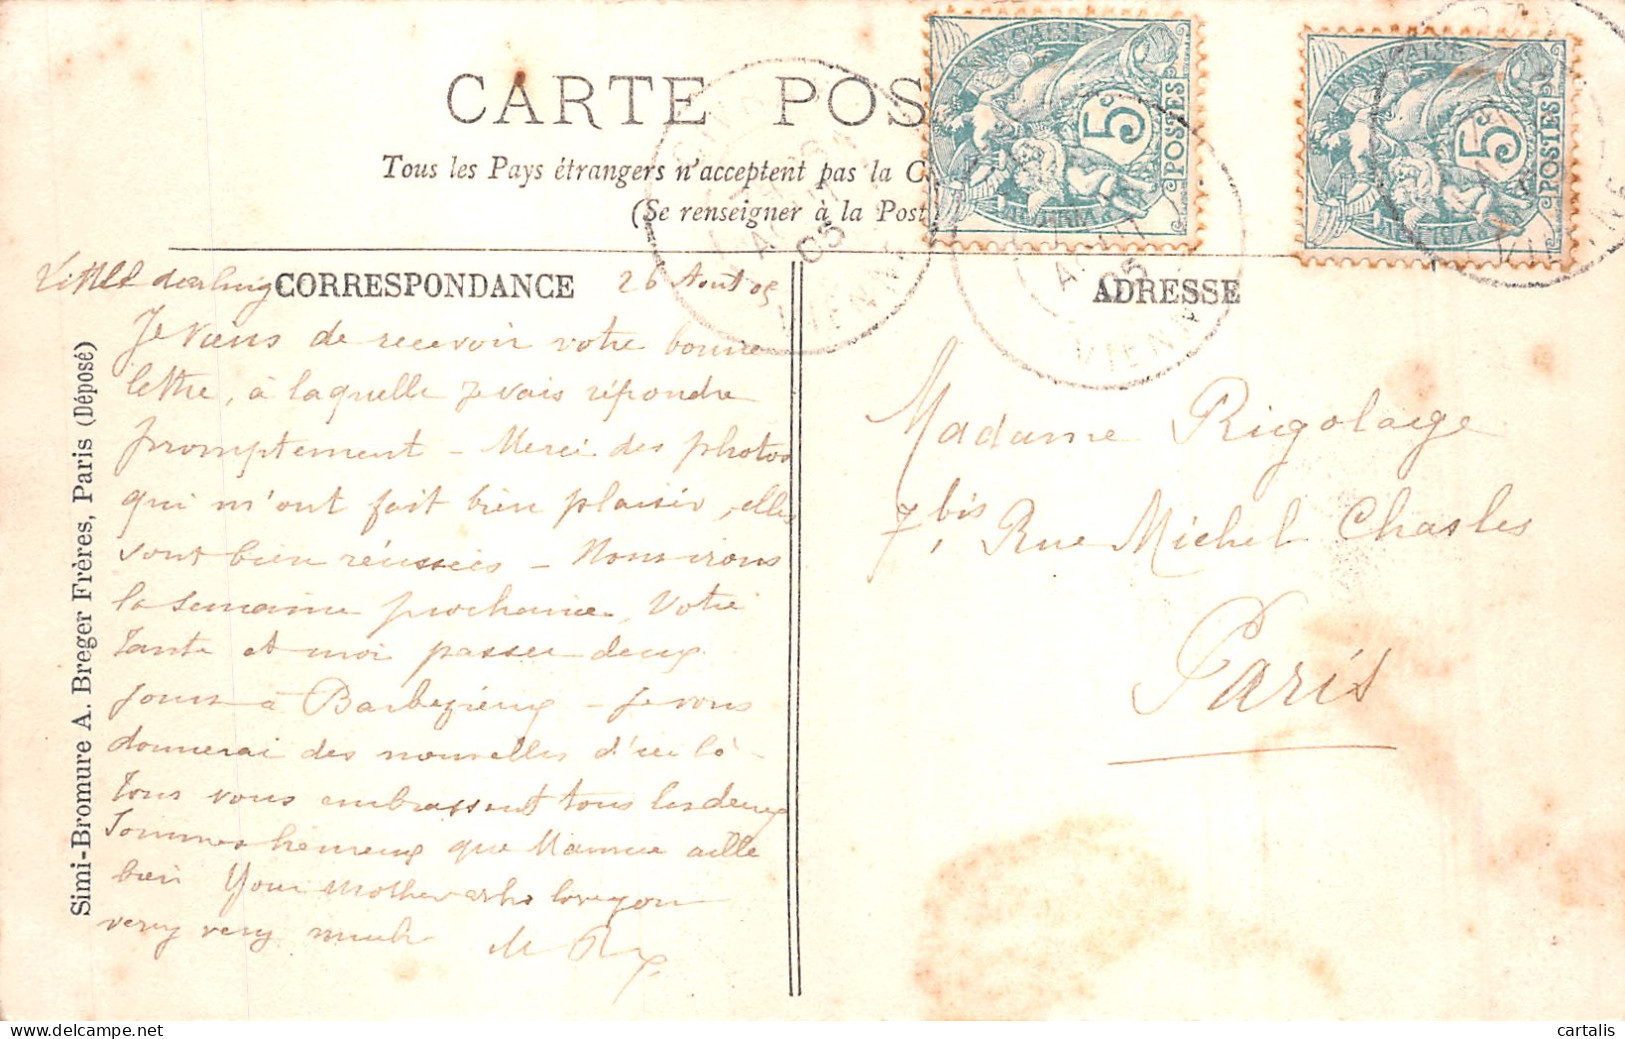 CARTE POS
Tous les Pays étrangers n'acceptent pas la C
(Se renseigner à la Post
FRANÇAISE
5c
POSTES
FRANÇAISE
5c
POSTES
AOUT
05
VIENNE
05
VIENN
VIENNE
CORRESPONDANCE
ADRESSE
Little darling
26 Aout 05
Je viens de recevoir votre bonne
lettre, à laquelle je vais répondre
promptement - Merci des photos
qui m'ont fait bien plaisir, elles
sont bien réussies - Nous irons
la semaine prochaine, Votre
Tante et moi passer deux
jours à Barbezieux - Je vous
donnerai des nouvelles d'ici là -
Tous vous embrassent tous les deux
Sommes heureux que Mamie aille
bien Your mother who love you
very very much
Madame Rigolage
7bis, Rue Michel Chasles
Paris
Simi-Bromure A. Breger Frères, Paris (Déposé)
cartalis